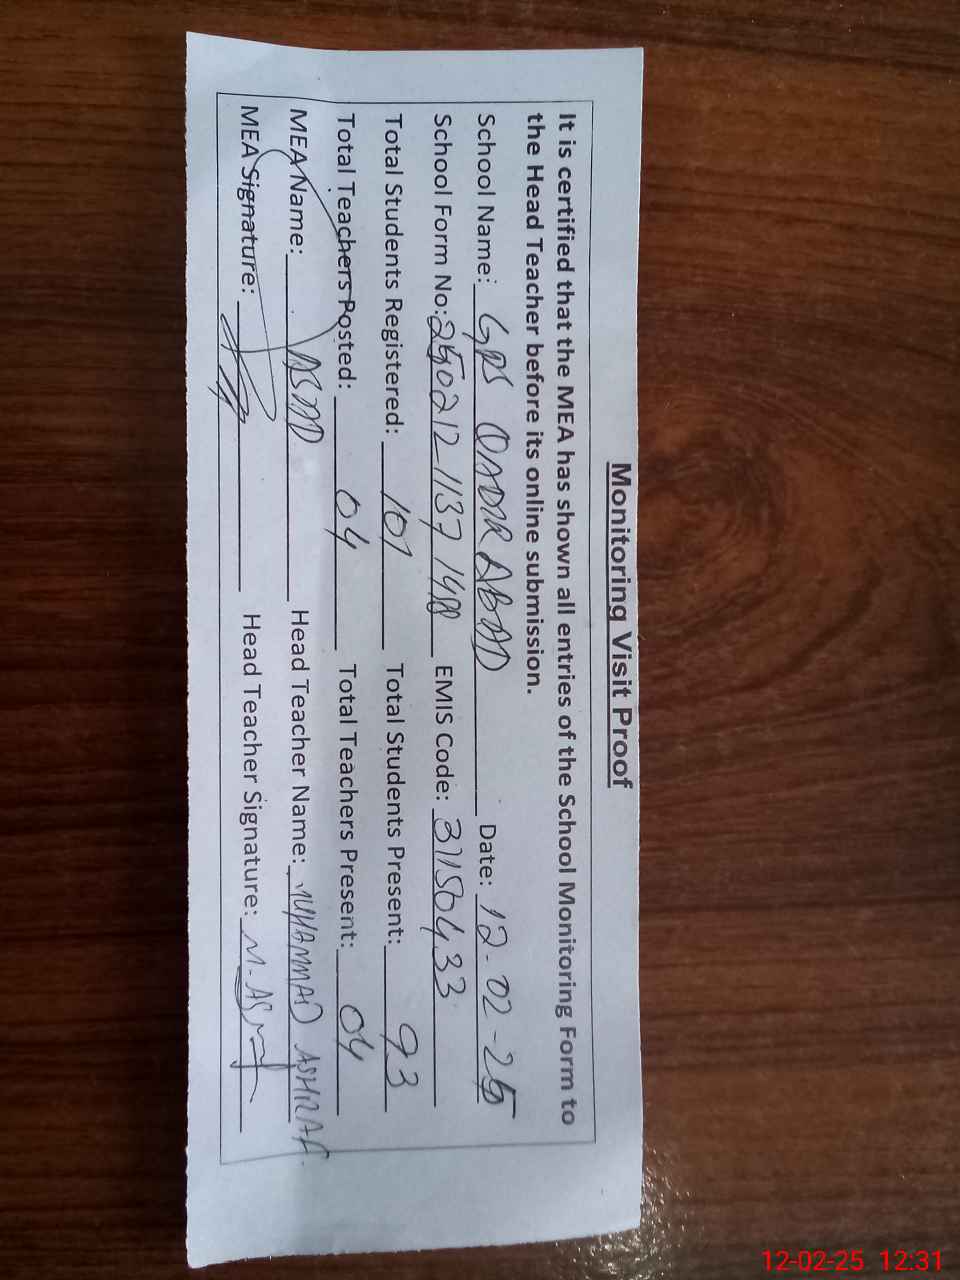 Monitoring Visit Proof
It is certified that the MEA has shown all entries of the School Monitoring Form to
the Head Teacher before its online submission.
School Name: GPS QADIR ABAD Date: 12-02-25
School Form No: 250212 1137 1488 EMIS Code: 37150433
Total Students Registered: 107 Total Students Present: 93
Total Teachers Posted: 04 Total Teachers Present: 04
MEA Name: ASAD Head Teacher Name: MUHAMMAD ASHRAF
MEA Signature: Head Teacher Signature: M. Ashraf
12-02-25 12:31